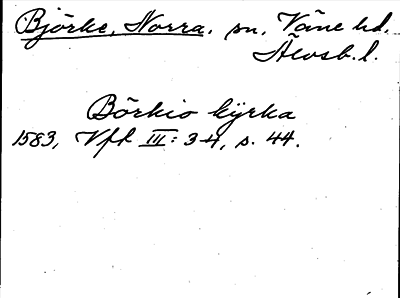 Björke, Norra. sn. Väne hd.
Älvsb. l.
Börkio kÿrka
1583, Vfk III: 3-4, s. 44.